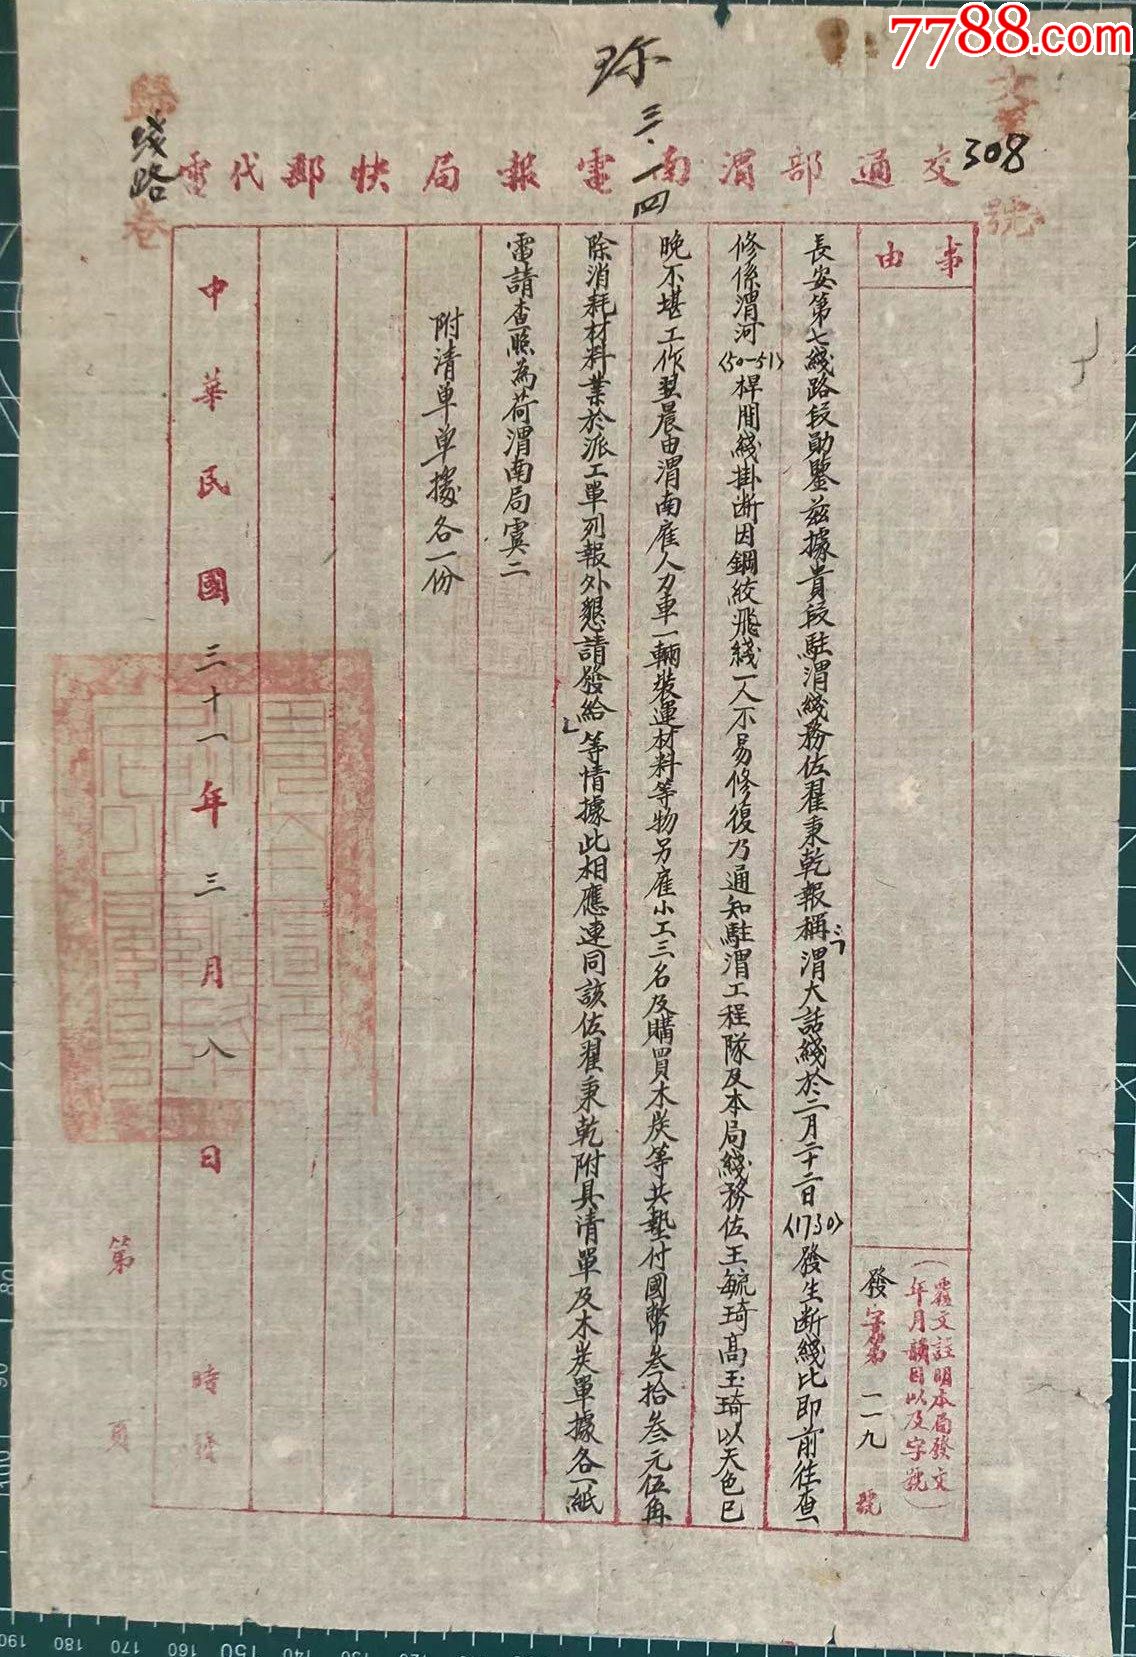 7788.com
珎
三.一四
308
號
歸
线路
卷
交通部渭南電報局快郵代電
事由
覆文註明本局發文
年月韻目以及字號
發字第二一九號
長安第七綫路段勛鑒兹據貴段駐渭綫務佐翟秉乾報稱渭大話綫於二月二十二日(1730)發生断綫比即前往查
修係渭河(50-51)桿間綫掛断因鋼絞飛綫一人不易修復乃通知駐渭工程隊及本局綫務佐王毓琦高玉琦以天色已
晚不堪工作翌晨由渭南雇人力車一輛裝運材料等物另雇小工三名及購買木炭等共墊付國幣叁拾叁元伍角
除消耗材料業於派工單列報外懇請發給等情據此相應連同該佐翟秉乾附具清單及木炭單據各一紙
電請查照為荷渭南局寘二
附清單单據各一份
中華民國三十一年三月八日
時發
第頁